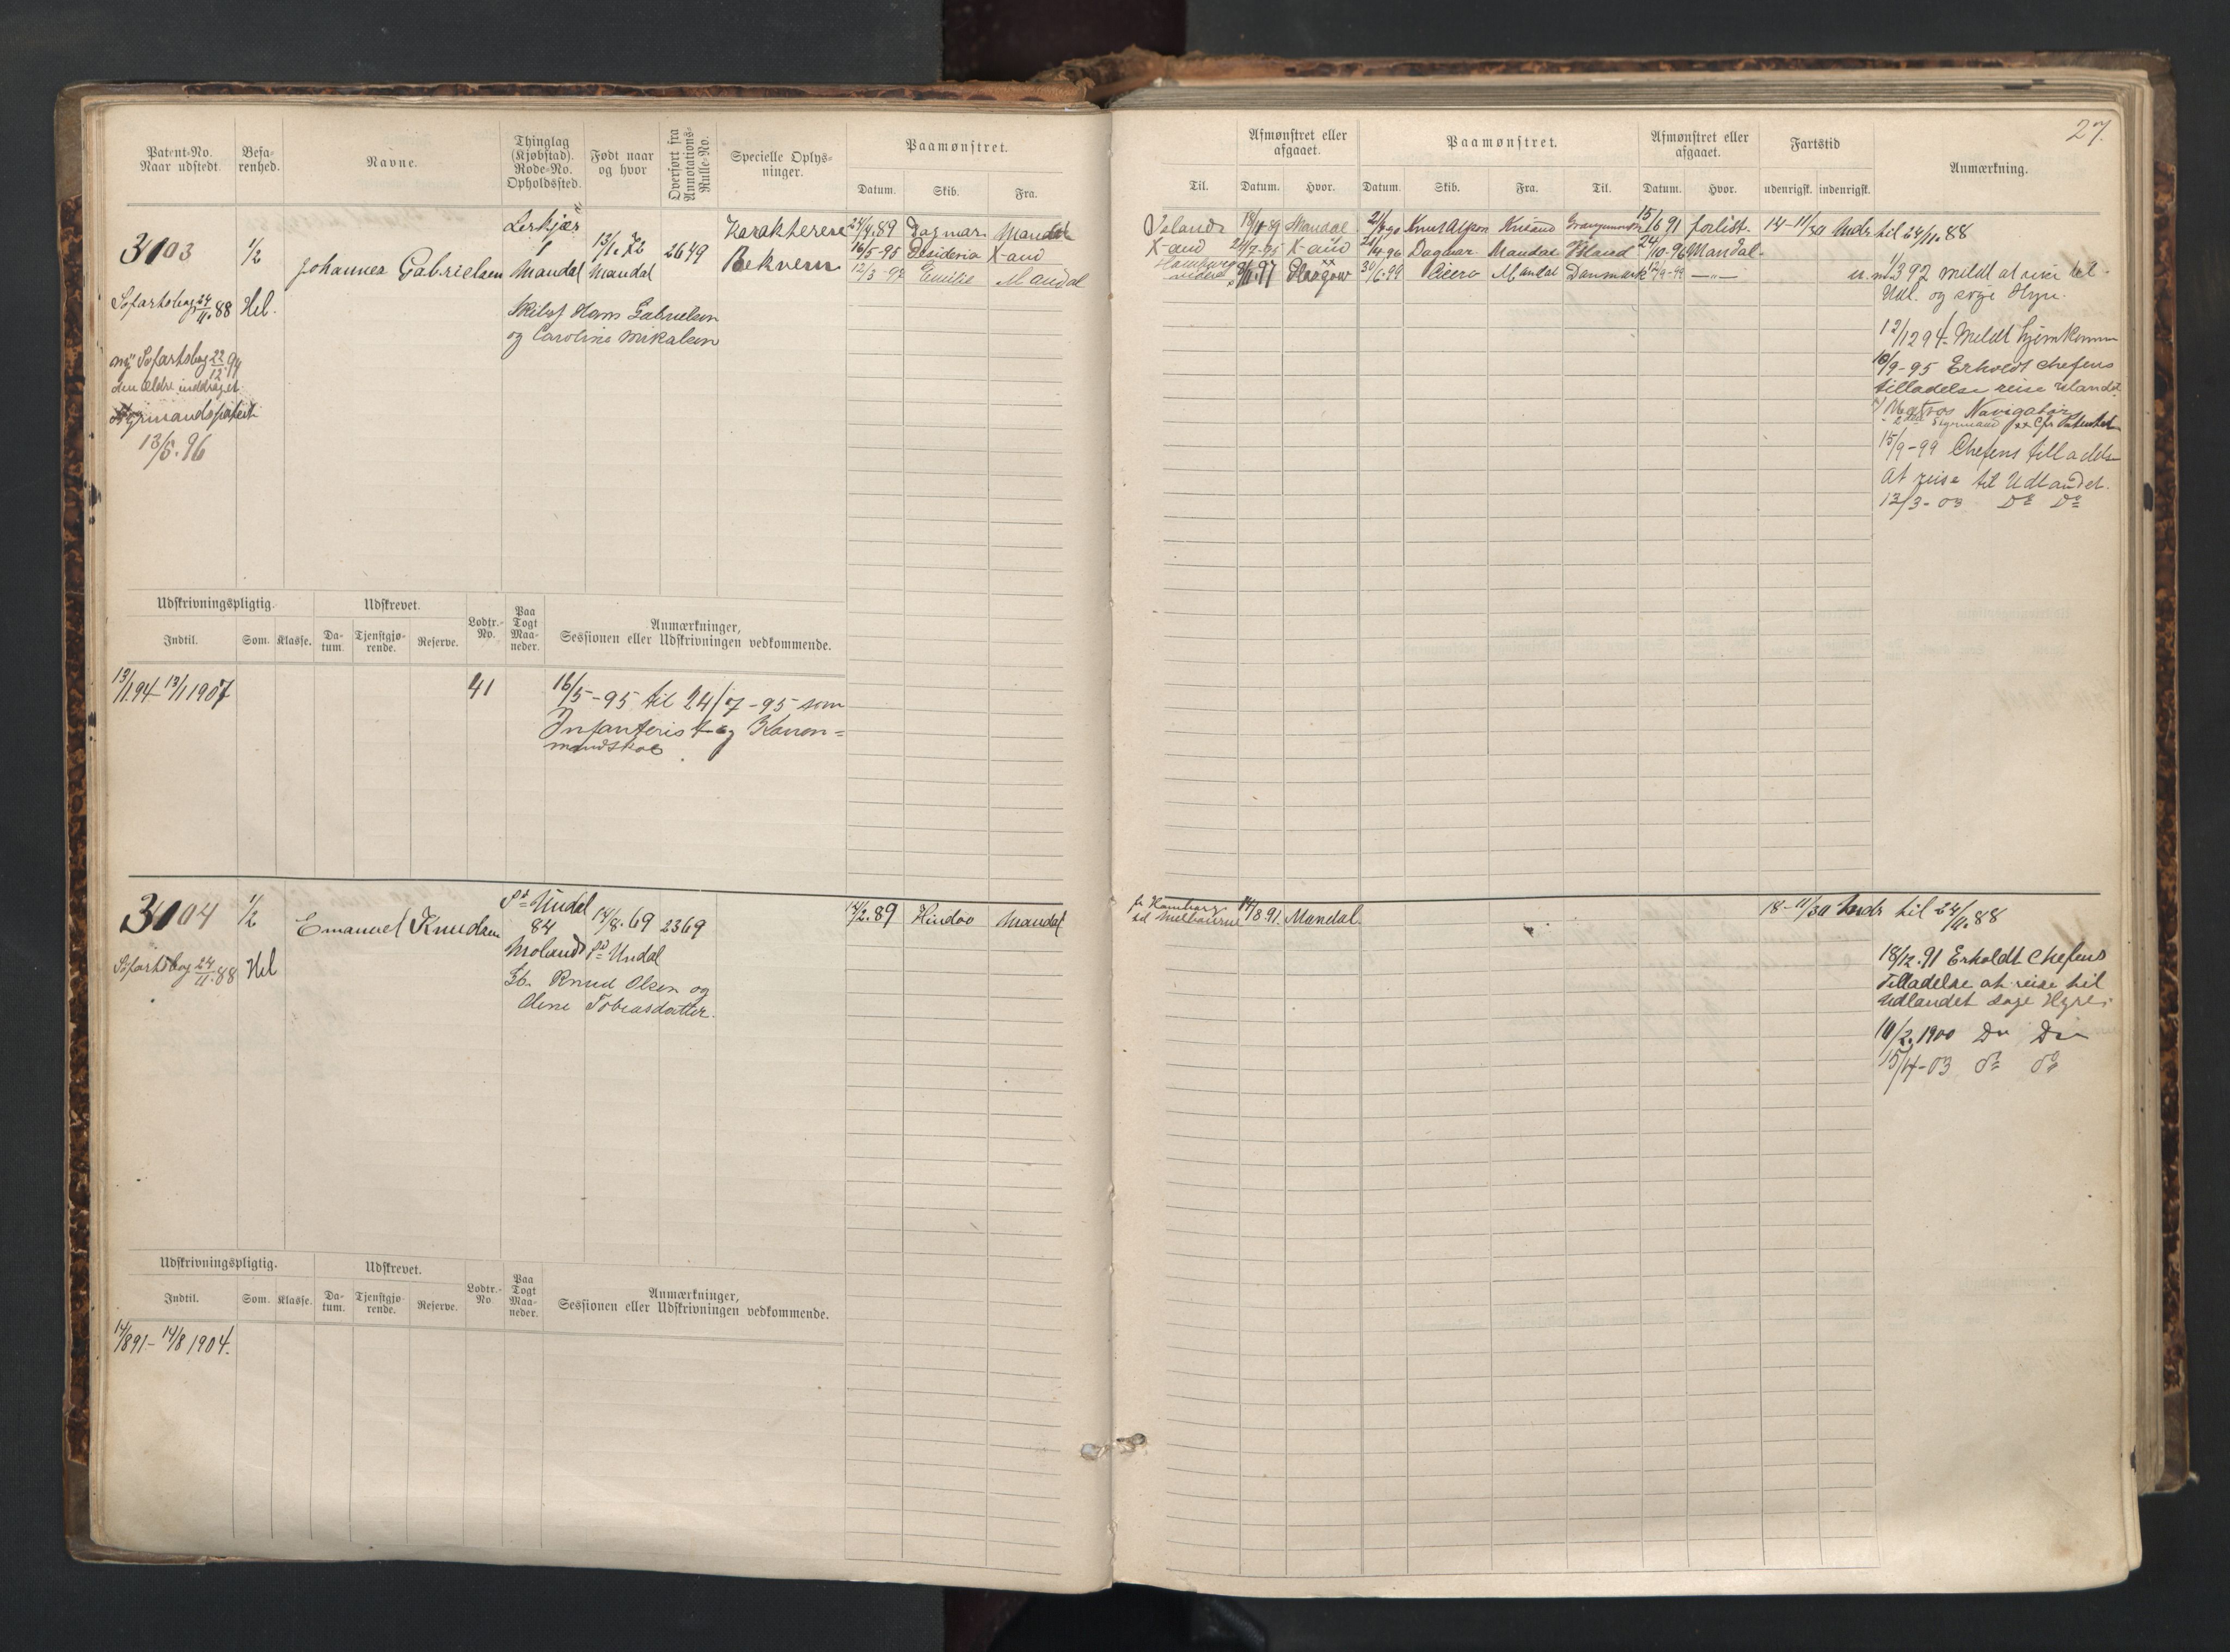 27.
Patent-No. Naar udstedt.
Befarenhed.
Navne.
Thinglag (Kjøbstad). Rode-No. Opholdssted.
Født naar og hvor
Overført fra Annotations-Rulle-No.
Specielle Oplysninger.
Paamønstret.
Datum. Skib. Fra.
Til.
Afmønstret eller afgaaet.
Datum. Hvor.
Paamønstret.
Datum. Skib. Fra. Til.
Afmønstret eller afgaaet.
Datum. Hvor.
Fartstid
udenrigsk. indenrigsk.
Anmærkning.
3103
1/2
Johannes Gabrielsen
1
Mandal
Mandal
2649
Karakterere
Bekvem
Søfartsbog 24/11.88 Hel.
Skibsf Hans Gabrielsen
og Caroline Mikalsen
Ny Søfartsbog 22/12 94
den ældre inddraget.
Styrmandspatent
13/5.96
24/4.89 Dagmar Mandal
16/5-95 Desideria X-and
12/3-97 Emilie Mandal
Island Mandal
X-and 24/7-95 X-and
Hamburg Glasgow
Mandal Island 24/10-96 Mandal.
30/6.99 Cicero Mandal Danmark
15/6 91 forlist.
14-11/30 Mdr til 24/11.88
meldt at reise til
Udl. og søge Hyre.
12/12 94 Meldt hjemkommen
10/9-95 Erholdt Chefens
tilladelse reise Udlandet
Matros Navigatør
15/9-99 Chefens tilladelse
at reise til Udlandet.
12/3-03 Do Do
Udskrivningspligtig.
Indtil. Som. Klasse.
Udskrevet.
Datum. Tjenstgjørende. Reserve.
Lodtr.-No.
Paa Togt Maaneder.
Anmærkninger,
Sessionen eller Udskrivningen vedkommende.
13/1 94-13/1 1907
41
16/5-95 til 24/7-95 som
Infanterist og Kanon=
mandskab
3104
1/2
Emanuel Knudsen
Sd Undal
84
14/8.69 2369
Moland Sd Undal
Søfartsbog 24/11.88 Hel
Knud Olsen og
Olene Tobiasdatter.
14/2.89 Hindoo Mandal
fr Hamburg
ad Melbourne 14/8 91. Mandal.
18-11/30 Mdr til 24/11.88
18/12.91 Erholdt Chefens
Tilladelse at reise til
Udlandet søge Hyre.
10/2.1900 Do Do
15/4-03 do do
Udskrivningspligtig.
Indtil. Som. Klasse.
Udskrevet.
Datum. Tjenstgjørende. Reserve.
Lodtr.-No
Paa Togt Maaneder.
Anmærkninger,
Sessionen eller Udskrivningen vedkommende.
14/8 91-14/8 1904.